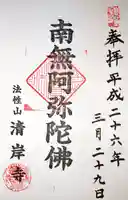 奉拝 平成二十六年
三月二十九日
南無阿弥陀佛
法性山
清岸寺